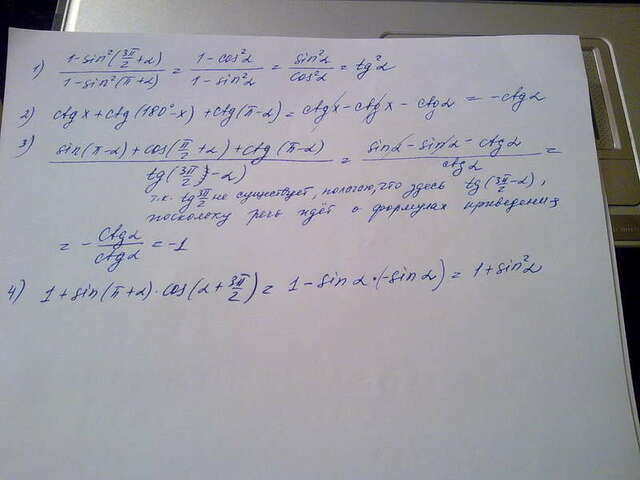 1) \frac{1-sin²(\frac{3π}{2}+α)}{1-sin²(π+α)} = \frac{1-cos²α}{1-sin²α} = \frac{sin²α}{cos²α} = tg²α
2) ctg x + ctg(180°-x) + ctg(π-α) = ctg x - ctg x - ctg α = -ctg α
3) \frac{sin(π-α)+cos(\frac{π}{2}+α)+ctg(π-α)}{tg(\frac{3π}{2})-α)} = \frac{sin α - sin α - ctg α}{ctg α} =
т.к. tg \frac{3π}{2} не существует, полагаю, что здесь tg(\frac{3π}{2}-α),
поскольку речь идёт о формулах приведения
= -\frac{ctg α}{ctg α} = -1
4) 1+sin(π+α)·cos(α+\frac{3π}{2}) = 1-sin α·(-sin α) = 1+sin²α